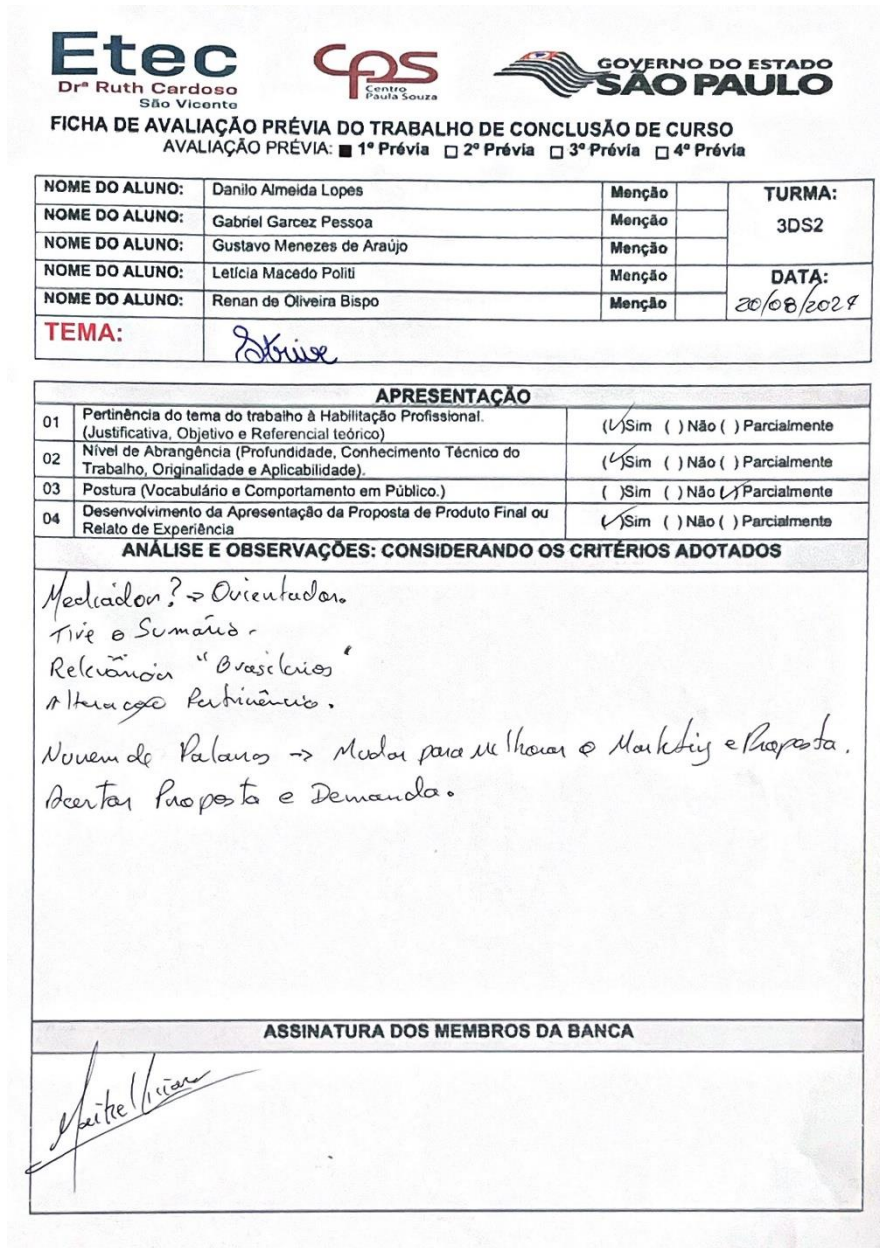 Etec
Drª Ruth Cardoso
São Vicente
CPS
Centro
Paula Souza
GOVERNO DO ESTADO
SÃO PAULO
FICHA DE AVALIAÇÃO PRÉVIA DO TRABALHO DE CONCLUSÃO DE CURSO
AVALIAÇÃO PRÉVIA: ■ 1ª Prévia □ 2ª Prévia □ 3ª Prévia □ 4ª Prévia
NOME DO ALUNO: Danilo Almeida Lopes Menção TURMA:
NOME DO ALUNO: Gabriel Garcez Pessoa Menção 3DS2
NOME DO ALUNO: Gustavo Menezes de Araújo Menção
NOME DO ALUNO: Letícia Macedo Politi Menção DATA:
NOME DO ALUNO: Renan de Oliveira Bispo Menção 20/08/2024
TEMA: Strive
APRESENTAÇÃO
01 Pertinência do tema do trabalho à Habilitação Profissional.
(Justificativa, Objetivo e Referencial teórico) (✓)Sim ( ) Não ( ) Parcialmente
02 Nível de Abrangência (Profundidade, Conhecimento Técnico do
Trabalho, Originalidade e Aplicabilidade). (✓)Sim ( ) Não ( ) Parcialmente
03 Postura (Vocabulário e Comportamento em Público.) ( )Sim ( ) Não (✓) Parcialmente
04 Desenvolvimento da Apresentação da Proposta de Produto Final ou
Relato de Experiência (✓)Sim ( ) Não ( ) Parcialmente
ANÁLISE E OBSERVAÇÕES: CONSIDERANDO OS CRITÉRIOS ADOTADOS
Mediador? → Orientador.
o Sumário.
Relevância "Brasileiros"
Alteração
Nuvem de Palavras → Mudar para Melhorar o Marketing e Proposta.
Acertar Proposta e Demanda.
ASSINATURA DOS MEMBROS DA BANCA